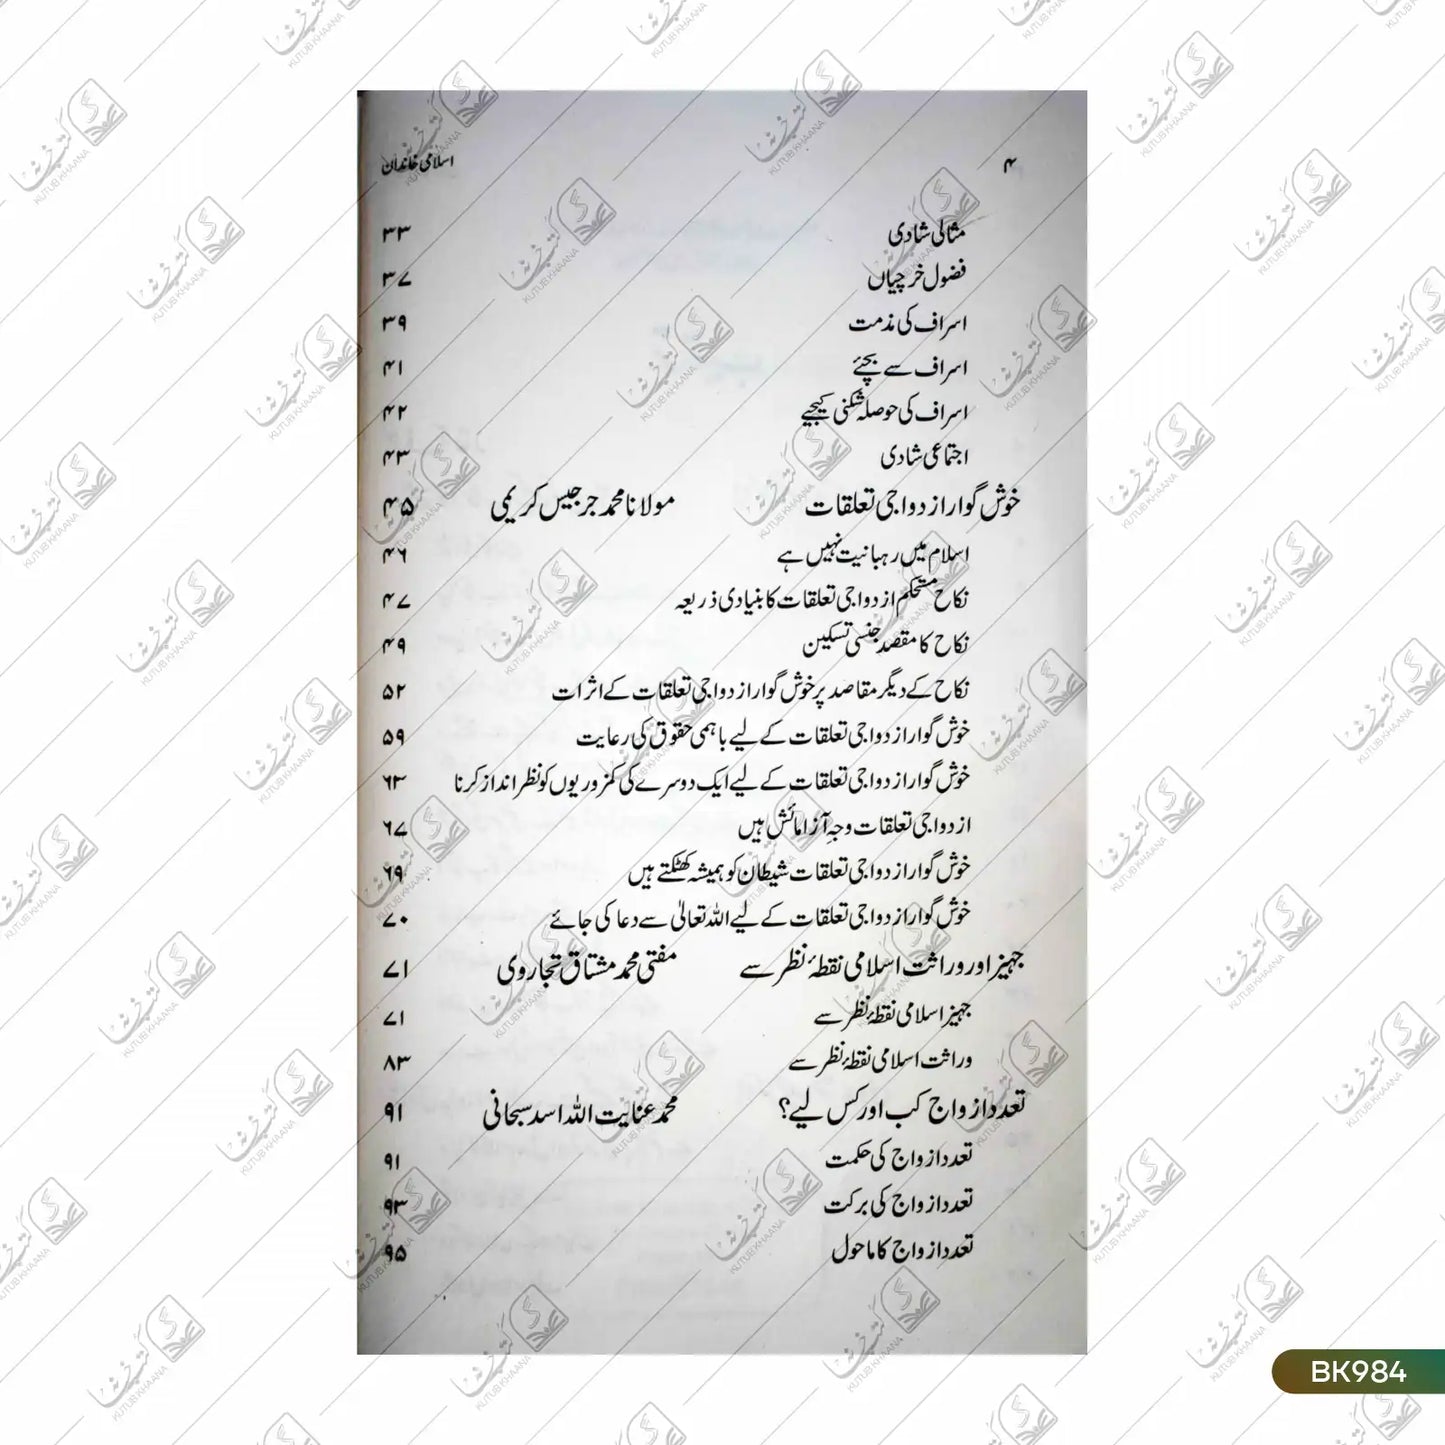 ۴ اسلامی خاندان
مثالی شادی ۳۳
فضول خرچیاں ۳۷
اسراف کی مذمت ۳۹
اسراف سے بچئے ۴۱
اسراف کی حوصلہ شکنی کیجیے ۴۲
اجتماعی شادی ۴۳
خوش گوار ازدواجی تعلقات مولانا محمد جرجیس کریمی ۴۵
اسلام میں رہبانیت نہیں ہے ۴۶
نکاح مستحکم ازدواجی تعلقات کا بنیادی ذریعہ ۴۷
نکاح کا مقصد جنسی تسکین ۴۹
نکاح کے دیگر مقاصد پر خوش گوار ازدواجی تعلقات کے اثرات ۵۲
خوش گوار ازدواجی تعلقات کے لیے باہمی حقوق کی رعایت ۵۹
خوش گوار ازدواجی تعلقات کے لیے ایک دوسرے کی کمزوریوں کو نظر انداز کرنا ۶۳
ازدواجی تعلقات وجہِ آزامائش ہیں ۶۷
خوش گوار ازدواجی تعلقات شیطان کو ہمیشہ کھٹکتے ہیں ۶۹
خوش گوار ازدواجی تعلقات کے لیے اللہ تعالیٰ سے دعا کی جائے ۷۰
جہیز اور وراثت اسلامی نقطۂ نظر سے مفتی محمد مشتاق تجاروی ۷۱
جہیز اسلامی نقطۂ نظر سے ۷۱
وراثت اسلامی نقطۂ نظر سے ۸۳
تعدد ازواج کب اور کس لیے؟ محمد عنایت اللہ اسد سبحانی ۹۱
تعدد ازواج کی حکمت ۹۱
تعدد ازواج کی برکت ۹۳
تعدد ازواج کا ماحول ۹۵
BK984